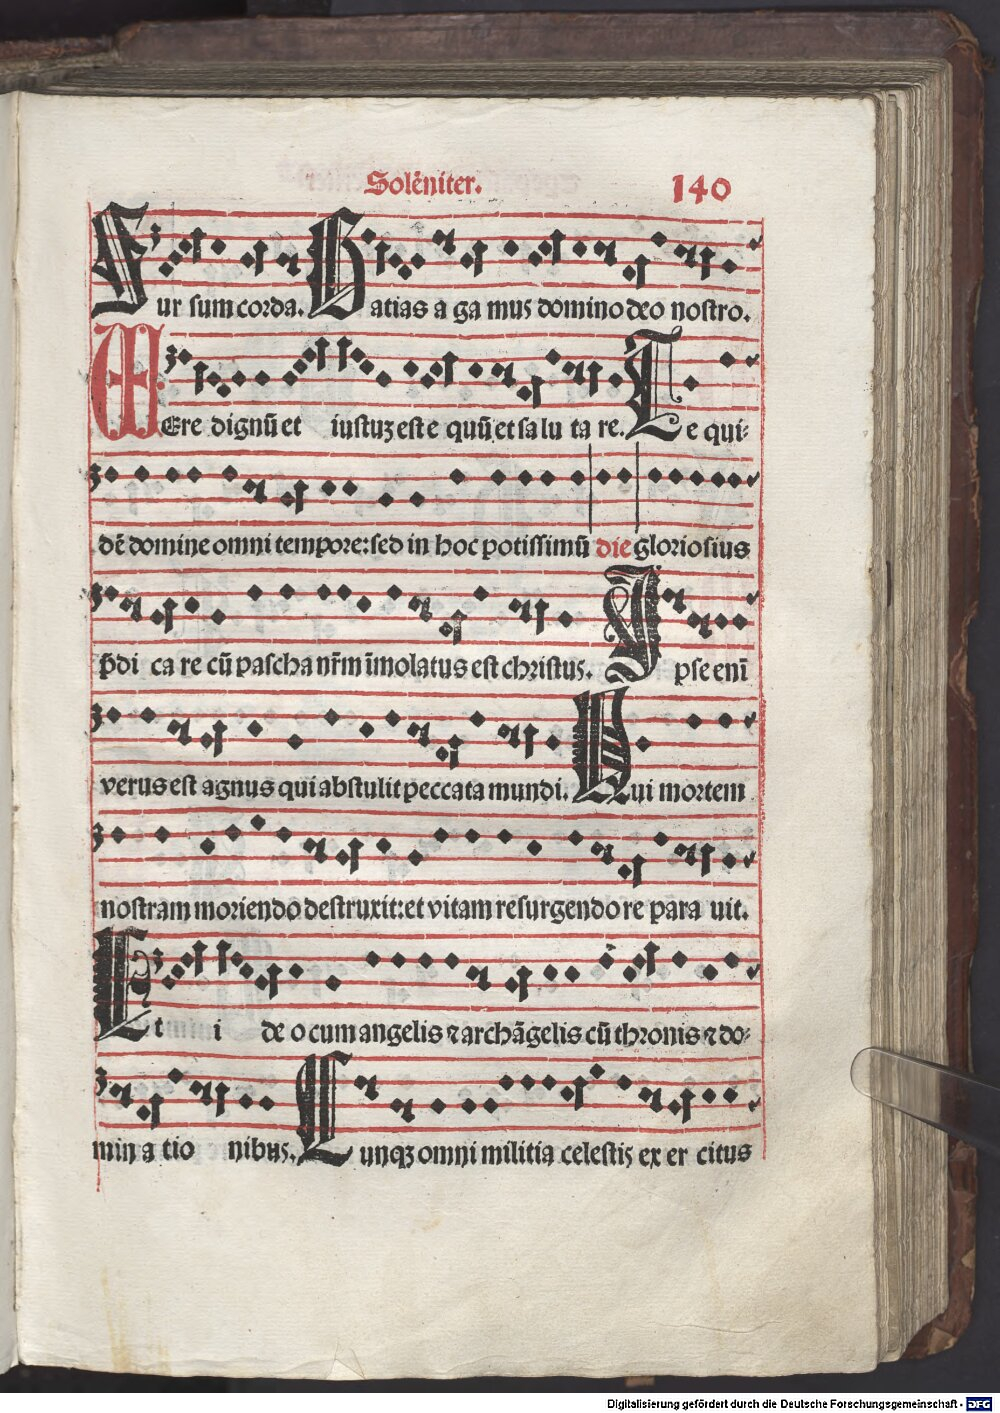 Solẽniter. 140
Sur sum corda. Gratias a ga mus domino deo nostro.
VEre dignũ et iustuz est e quũ et sa lu ta re. Te qui⸗
dẽ domine omni tempore: sed in hoc potissimũ die gloriosius
p̃di ca re cũ pascha nr̃m ĩmolatus est christus. Ipse enĩ
verus est agnus qui abstulit peccata mundi. Qui mortem
nostram moriendo destruxit: et vitam resurgendo re para uit.
Et i de o cum angelis ⁊ archãgelis cũ thronis ⁊ do⸗
min a tio nibus. Cunqꝫ omni militia celestis ex er citus
Digitalisierung gefördert durch die Deutsche Forschungsgemeinschaft - DFG